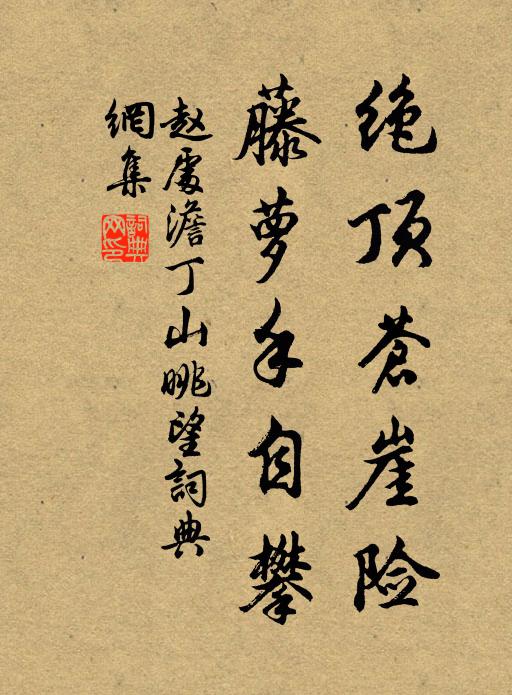 绝顶苍崖险
藤萝手自攀
赵处澹丁山眺望詞典
網集
詞典网印